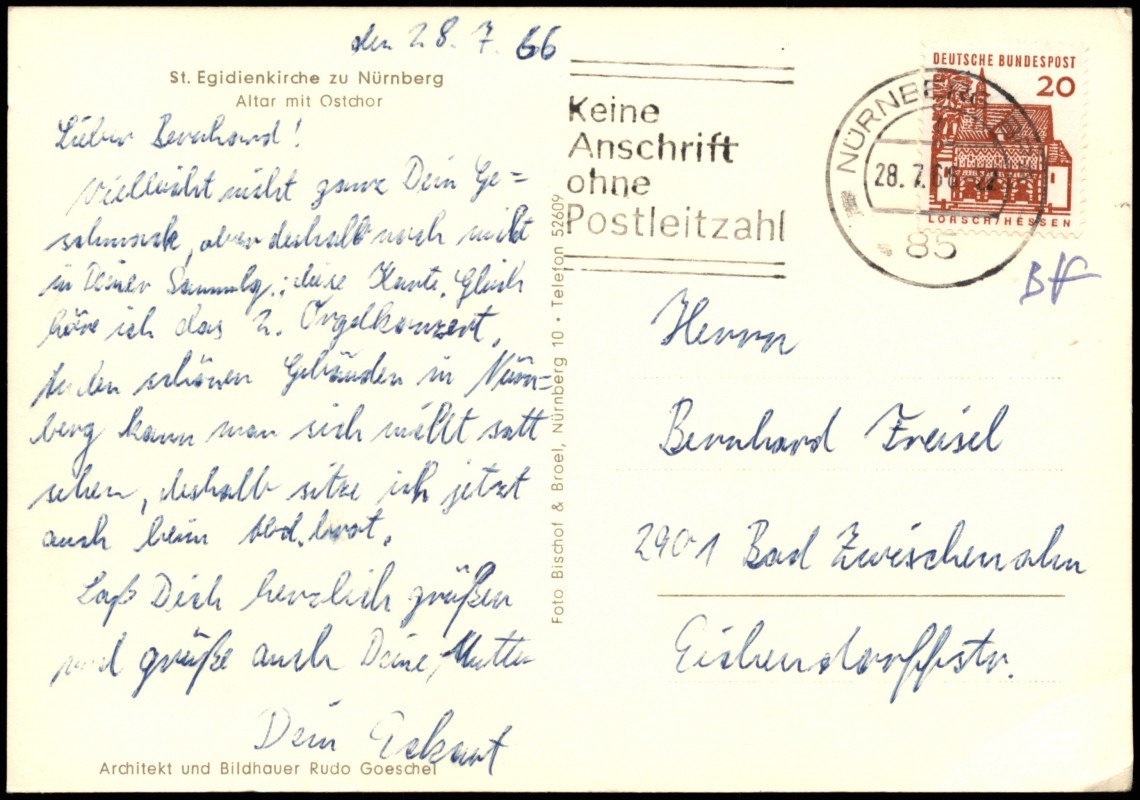 den 28. 7. 66
St. Egidienkirche zu Nürnberg
Altar mit Ostchor
Lieber Bernhard!
Vielleicht nicht ganz Dein Ge=
schmack, aber deshalb noch nicht
in Deiner Sammlg.: diese Karte. Gleich
höre ich das 2. Orgelkonzert,
An den schönen Gebäuden in Nürn=
berg kann man sich nicht satt
sehen, deshalb sitze ich jetzt
auch beim
Laß Dich herzlich grüßen
und grüße auch Deine Mutter
Dein Eckart
Architekt und Bildhauer Rudo Goeschel
Foto Bischof & Broel, Nürnberg 10 • Telefon 52609
Keine
Anschrift
ohne
Postleitzahl
NÜRNBERG
28. 7. 66 - 22
85
DEUTSCHE BUNDESPOST
20
LORSCH/HESSEN
Herrn
Bernhard Freisel
2901 Bad Zwischenahn
Eichendorffstr.